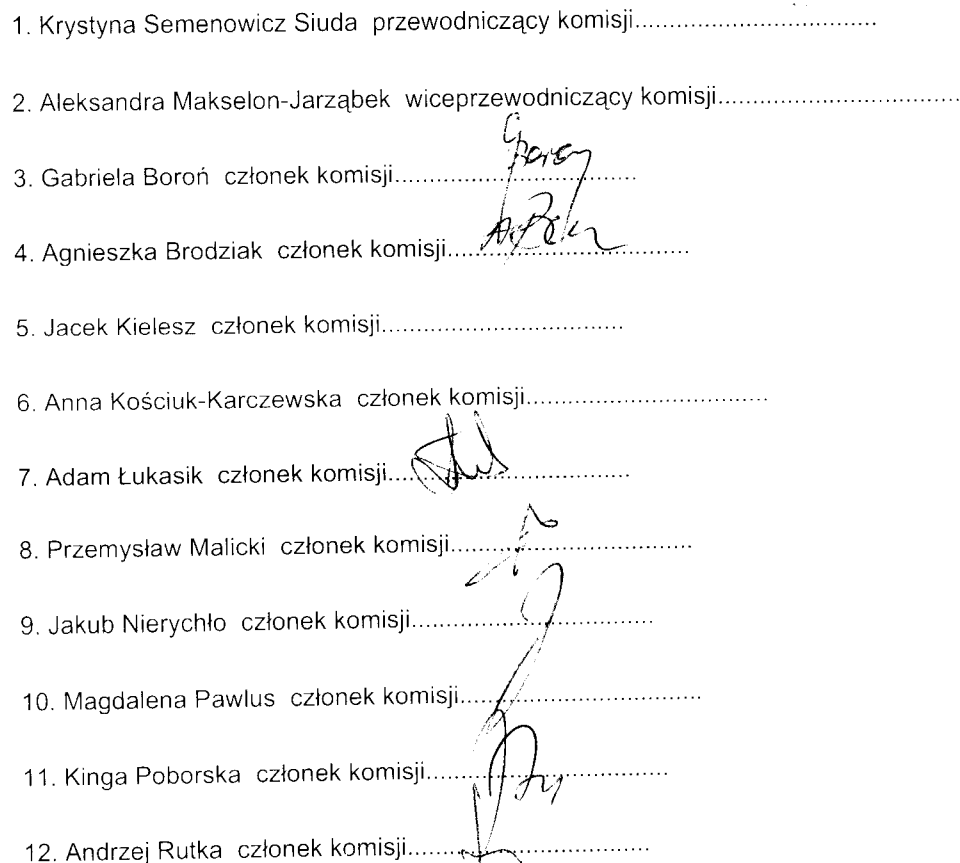 1. Krystyna Semenowicz Siuda przewodniczący komisji...................................
2. Aleksandra Makselon-Jarząbek wiceprzewodniczący komisji...................................
3. Gabriela Boroń członek komisji...................................
4. Agnieszka Brodziak członek komisji...................................
5. Jacek Kielesz członek komisji...................................
6. Anna Kościuk-Karczewska członek komisji...................................
7. Adam Łukasik członek komisji...................................
8. Przemysław Malicki członek komisji...................................
9. Jakub Nierychło członek komisji...................................
10. Magdalena Pawlus członek komisji...................................
11. Kinga Poborska członek komisji...................................
12. Andrzej Rutka członek komisji...................................